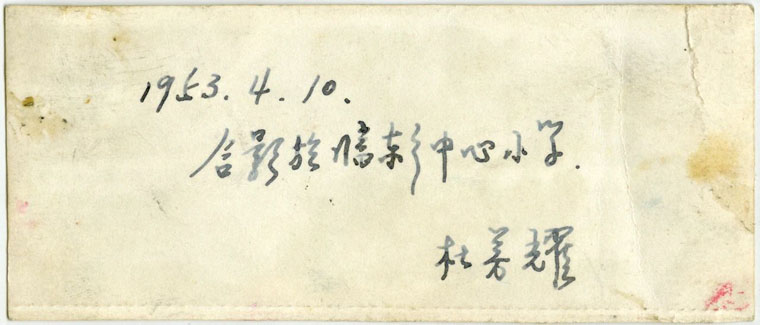 1953.4.10.
合影於临彭中心小学.
杜光耀